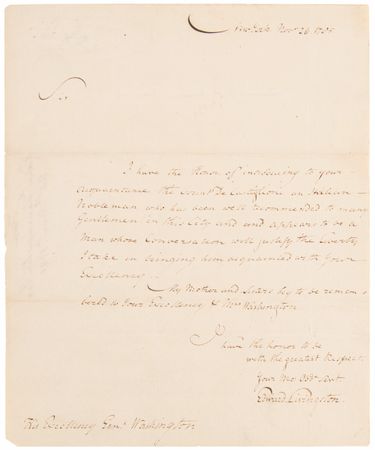 New York Novr 26 1785
Sir
I have the Honor of introducing to your
acquaintance the Count De Castiglioni an Italian
Nobleman who has been well recommended to many
Gentlemen in this City and and appears to be a
Man whose Conversation will justify the Liberty
I take in bringing him acquainted with Your
Excellency.
My Mother and Sisters beg to be remem
berd to Your Excellency & Mrs Washington
I have the honor to be
with the greatest Respect
Your Mo Obt Servt
Edward Livingston.
His Excellency Genl Washington